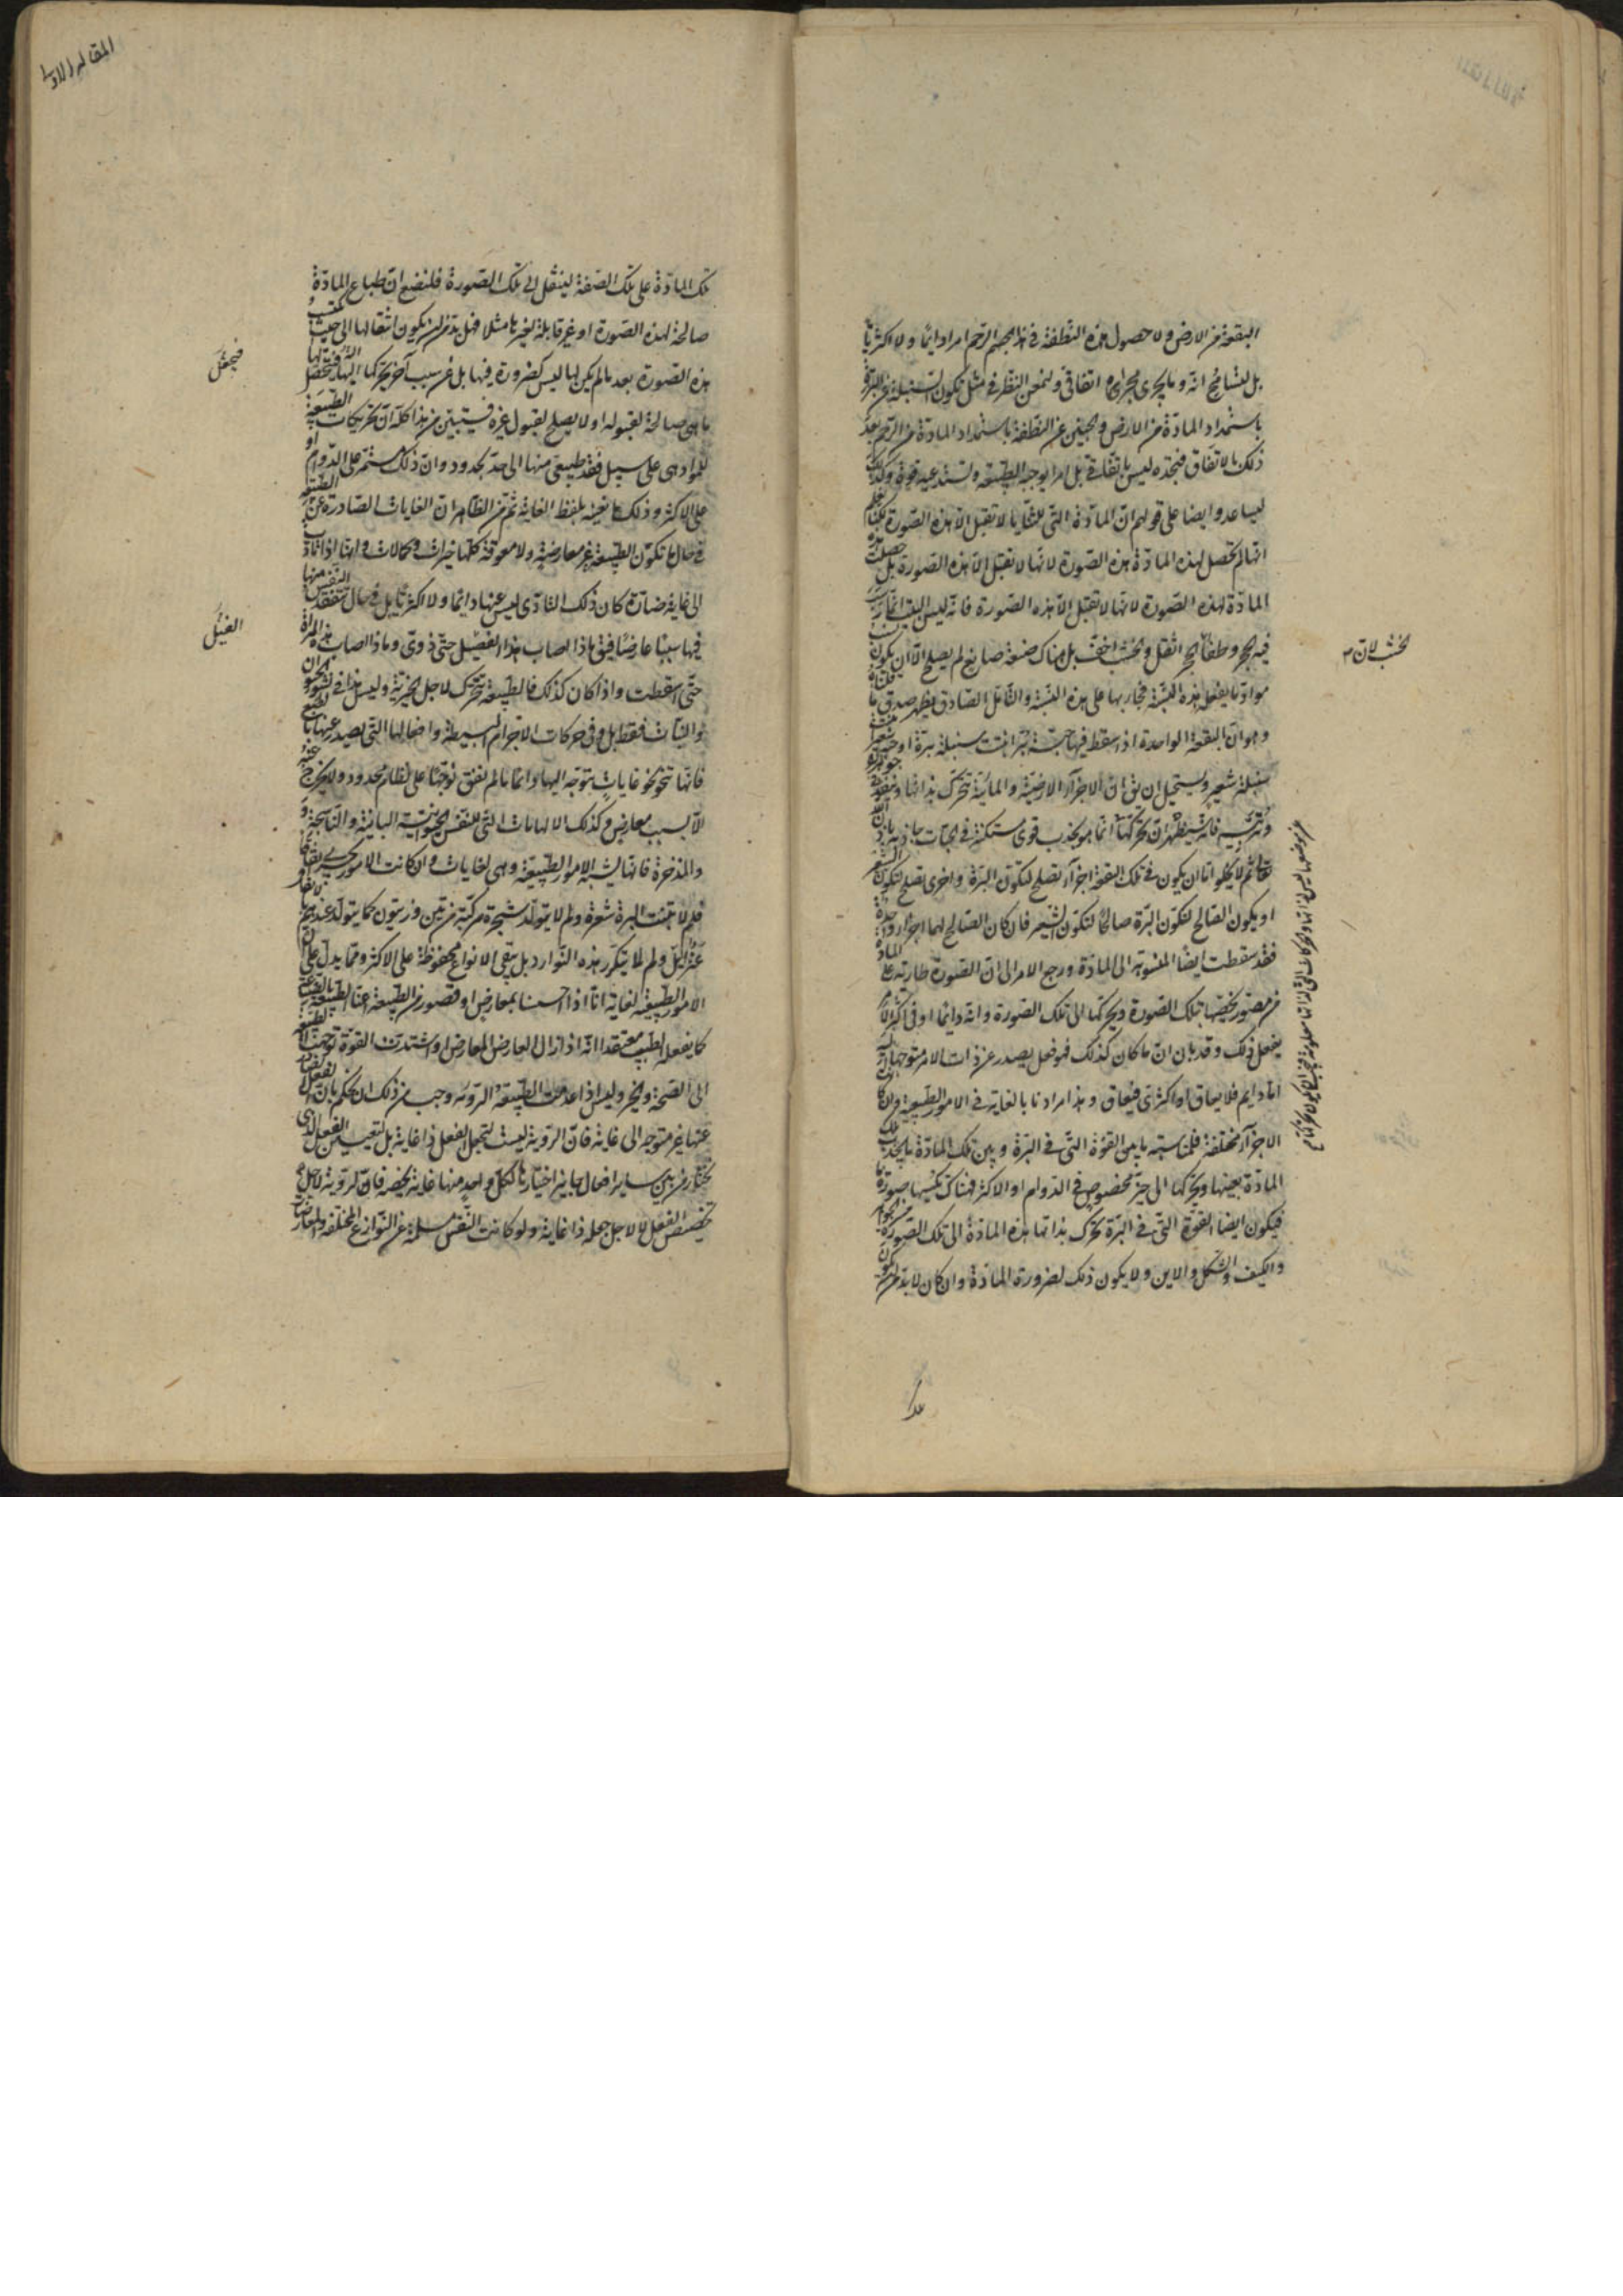 البقعة من الارض ولا حصول هذه النطفة فى هذا الجسم الرحم امرا دائما ولا اكثريا
بل لنسامح انه وما يجرى مجراه اتفاقى ولنمعن النظر فى مثل تكون السنبلة عن البرة
باستمداد المادة من الارض والجنين عن النطفة باستمداد المادة من الرحم بعد
ذلك بالاتفاق فنجده ليس باتفاق بل امرا يوجبه الطبيعة وتستدعيه قوة وكذلك
ليساعدوا ايضا على قولهم ان المادة التى للثنايا لا تقبل الا هذه الصورة لكنا نعلم
انها لم تحصل لهذه المادة هذه الصورة لانها لا تقبل الا هذه الصورة بل حصلت هذه
المادة لهذه الصورة لانها لا تقبل الا هذه الصورة فانه ليس البيت انما رسب
فيه الحجر وطفا الخشب لان الحجر اثقل والخشب اخف بل هناك صنعة صانع لم يصلح الا ان يكون
موادما يفعله هذه النسبة فجاء بها على هذه النسبة والتامل الصادق يظهر صدق ما قلناه
وهو ان البقعة الواحدة اذا سقط فيها حبة بر انبت سنبلة برة او حبة شعير انبتت
سنبلة شعير ويستحيل ان يق ان الاجزاء الارضية والمائية تتحرك بذاتها وتنفذ فى جوهر البرة
وتربيه فانه سيظهر ان تحركها عن موضعها ليس لذاتها والحركات التى لذاتها معلومة فيجب ان يكون تحركها انما هو بجذب قوى مستكنة فى الحبات جاذبة باذن الله
تعالى ثم لا يخلو اما ان يكون فى تلك البقعة اجزاء تصلح لتكون البرة واخرى تصلح لتكون الشعير
او يكون الصالح لتكون البرة صالحا لتكون الشعير فان كان الصالح لهما اجزاء واحدة
فقد سقطت ايضا المنسوبة الى المادة ورجع الامر الى ان الصورة طارئة على المادة
من مصور يخصها بتلك الصورة ويحركها الى تلك الصورة وانه دائما او فى اكثر الامر
يفعل ذلك وقد بان ان ما كان كذلك فهو فعل يصدر عن ذات الامر متوجها اليه
اما دايم فلا يعاق او اكثرى فيعاق وهذا مرادنا بالغاية فى الامور الطبيعية وان كانت
الاجزاء مختلفة فلمناسبة ما بين القوة التى فى البرة وبين تلك المادة ما يجذب تلك
المادة بعينها ويحركها الى حيز مخصوص فى الدوام او الاكثر فهناك تكسبها صورة ما
فيكون ايضا القوة التى فى البرة تحرك بذاتها هذه المادة الى تلك الصورة من الجوهر
والكيف والشكل والاين ولا يكون ذلك لضرورة المادة وان كان لابد من ان يكون
تلك المادة على تلك الصفة لينتقل الى تلك الصورة فلنضع ان طباع المادة
صالحة لهذه الصورة او غير قابلة لغيرها مثلا فهل بد من ان يكون انتقالها الى حيث تكتسب
هذه الصورة بعد ما لم يكن لها ليس لضرورة فيها بل عن سبب آخر يحركها اليها فتحصل لها
ما هى صالحة لقبوله او لا يصلح لقبول غيره فيتبين من هذا كله ان تحريكات الطبيعة
للمواد هى على سبيل قصد طبيعى منها الى حد محدود وان ذلك مستمر على الدوام او
على الاكثر وذلك ما نعنيه بلفظ الغاية ثم من الظاهر ان الغايات الصادرة عن الطبيعة
فى حال ما تكون الطبيعة غير معارضة ولا معوقة كلها خيرات وكمالات وانها اذا تادت
الى غاية ضارة كان ذلك التادى ليس عنها دائما ولا اكثريا بل فى حال تتفقد النفس منها
فيها سببا عارضا فيق ماذا اصاب هذا الفسيل حتى ذوى وماذا اصاب هذه المراة
حتى اسقطت واذا كان كذلك فالطبيعة تتحرك لاجل الخيرية وليس هذا فى نشو الحيوان
والنبات فقط بل وفى حركات الاجرام البسيطة وافعالها التى يصدر عنها بالطبع
فانها تنحو نحو غايات يتوجه اليها دائما ما لم يعق توجها على نظام محدود ولا يخرج عنه
الا بسبب معارض وكذلك الالهامات التى للنفس الحيوانية البانية والناسجة و
والمدخرة فانها يشبه الامور الطبيعية وهى لغايات وان كانت الامور يجرى اتفاقا
فلم لا تنبت البرة شعيرة ولم لا يتولد شجرة مركبة من تين وزيتون كما يتولد عندهم بالاتفاق
عنز ايل ولم لا يتكرر هذه النوادر بل يبقى الانواع محفوظة على الاكثر ومما يدل على ان
الامور الطبيعية لغاية انا اذا احسسنا بمعارض او قصور من الطبيعة اعنا الطبيعة بالصناعة
كما يفعله الطبيب معتقدا انه اذا زال العارض المعارض او اشتدت القوة توجهت الطبيعة
الى الصحة والخير وليس اذا عدمت الطبيعة الروية وجب من ذلك ان يحكم بان الفعل الصادر
عنها غير متوجه الى غاية فان الروية ليست لتجعل الفعل ذا غاية بل لتعيين الفعل الذى
يختار من بين ساير افعال جايز اختيارها لكل واحد منها غاية يخصه فان الروية لاجل
تخصيص الفعل لا لاجل جعله ذا غاية ولو كانت النفس مسلمة عن النوازع المختلفة والمعارضات
الخشب لان
فيحصل
الفسيل
المقالة الاولى